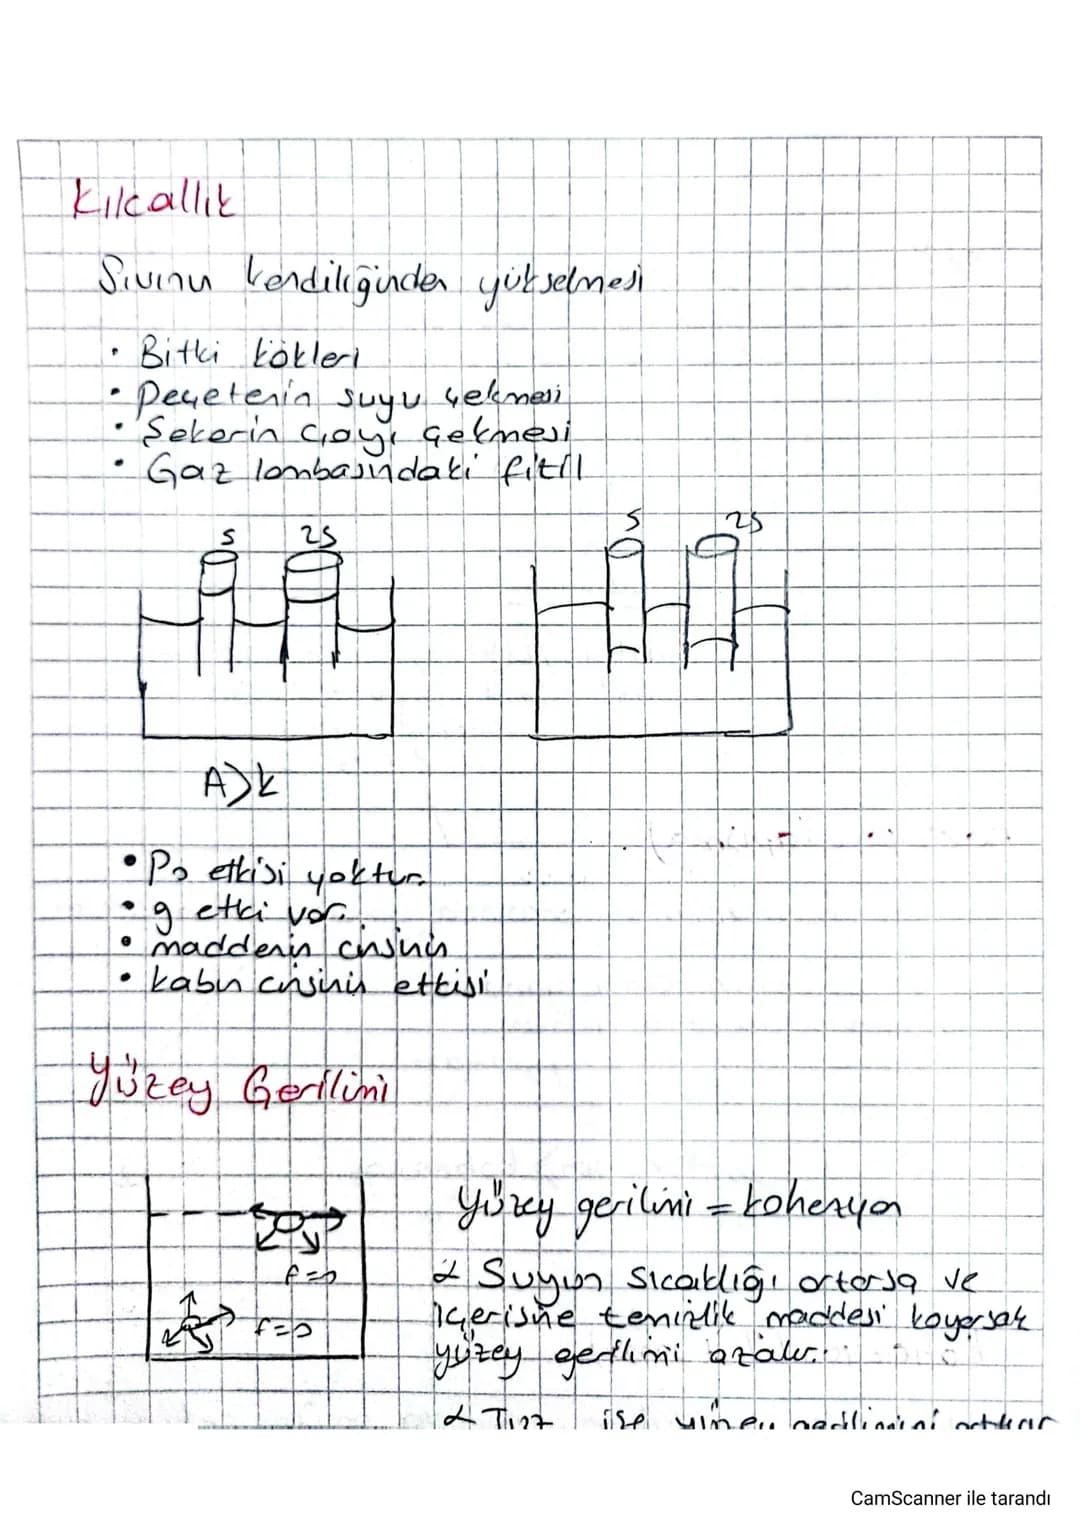 Kılcallık
Sıvının kendiliğinden yükselmesi
• Bitki kökleri
• Peçetenin suyu çekmesi
• Şekerin çayı çekmesi
• Gaz lambasındaki fitil
S 2S S 2S
A>k
• Po etkisi yoktur.
• g etki var.
• maddenin cinsinin
• kabın cinsinin etkisi
Yüzey Gerilimi
Yüzey gerilimi = kohezyon
Suyun sıcaklığı artarsa ve
f=0
içerisine temizlik maddesi koyarsak
f=0
yüzey gerilimi azalır.
Tuz ise yüzey gerilimini arttırır
CamScanner ile tarandı